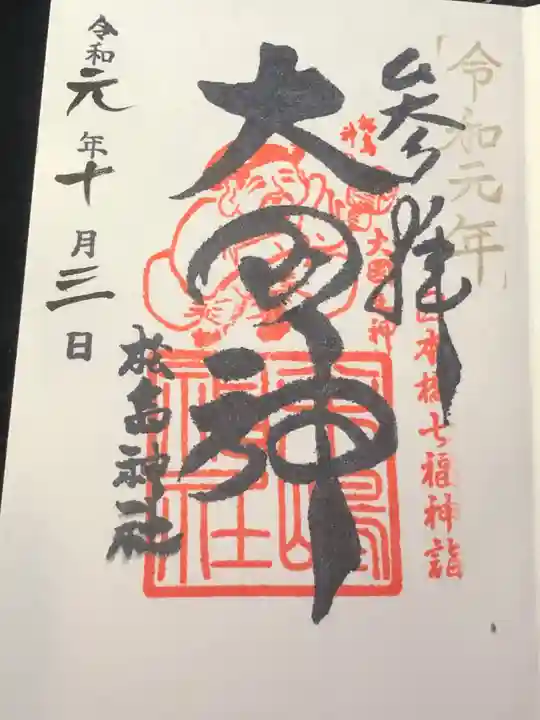 「令和元年」
参拝
日本橋七福神詣
大国主神
大国神
松島神社
松島神社
令和元年十月三日